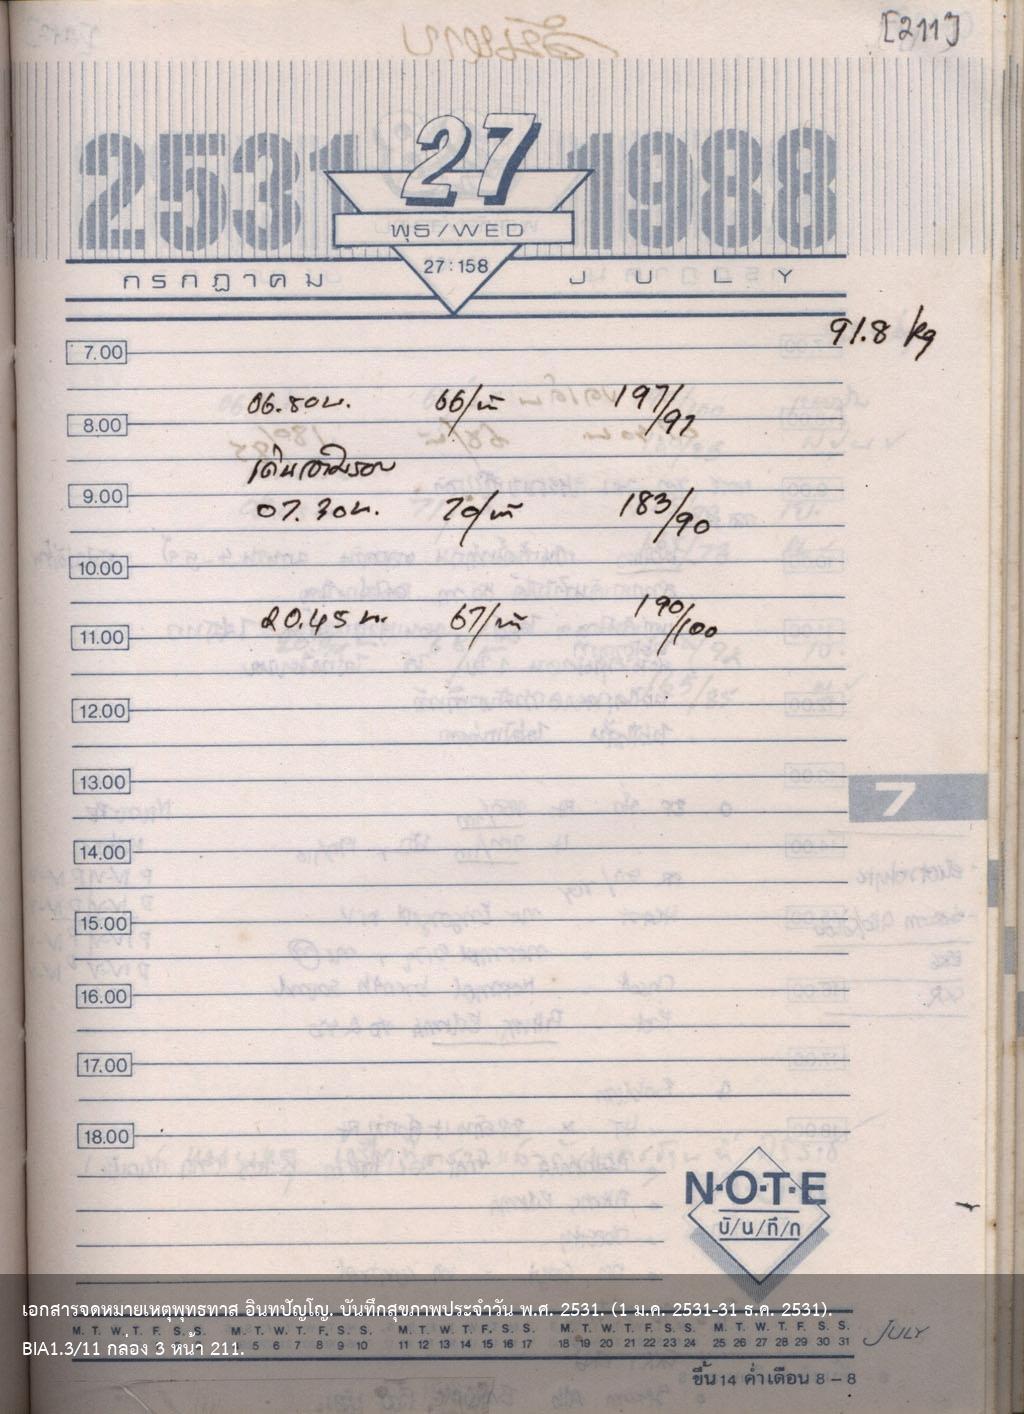 [211]
2531 27 1988
พุธ/WED
27:158
กรกฎาคม JULY
91.8 kg
7.00
06.50 น. 66/น 197/97
8.00
9.00
07.30 น. 70/น 183/90
10.00
20.45 น. 67/น 190/100
11.00
12.00
13.00
7
14.00
15.00
16.00
17.00
18.00
N·O·T·E
บั/น/ทึ/ก
เอกสารจดหมายเหตุพุทธทาส อินทปัญโญ. บันทึกสุขภาพประจำวัน พ.ศ. 2531. (1 ม.ค. 2531-31 ธ.ค. 2531).
M. T. W. T. F. S. S. M. T. W. T. F. S. S. M. T. W. T. F. S. S. M. T. W. T. F. S. S. M. T. W. T. F. S. S. JULY
BIA1.3/11 กล่อง 3 หน้า 211.
5 6 7 8 9 10 11 12 13 14 15 16 17 18 19 20 21 22 23 24 25 26 27 28 29 30 31
ขึ้น 14 ค่ำ เดือน 8 – 8